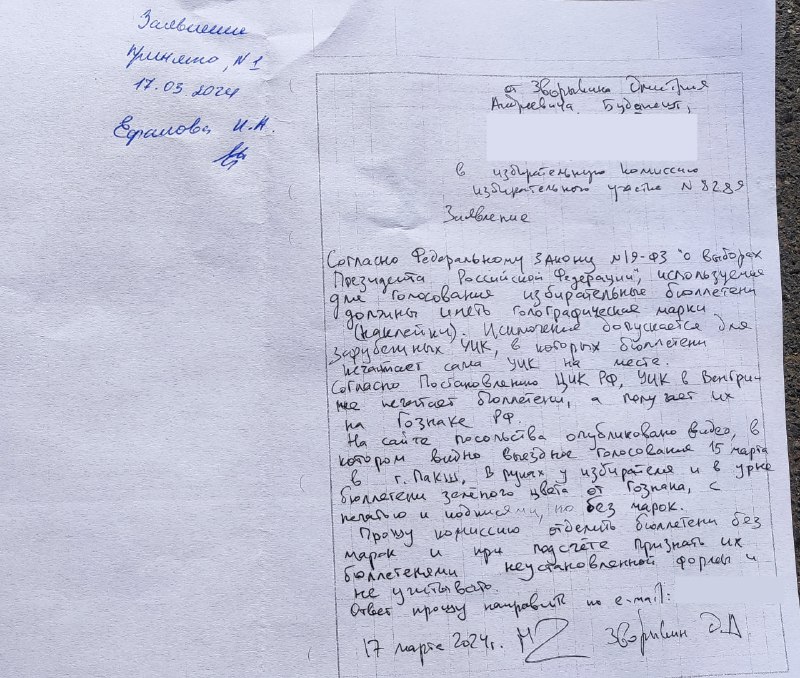 Заявление
принято, N1
17.03 2024
Ефалова И.Н.
от Зворыкина Дмитрия
Андреевича, Будапешт,
в избирательную комиссию
избирательного участка N8289
Заявление
Согласно Федеральному Закону №19-ФЗ "о выборах
Президента Российской Федерации", используемые
для голосования избирательные бюллетени
должны иметь голографические марки
(наклейки). Исключение допускается для
зарубежных УИК, в которых бюллетени
печатает сама УИК на месте.
Согласно Постановлению ЦИК РФ, УИК в Венгрии
не печатает бюллетени, а получает их
на Гознаке РФ.
На сайте посольства опубликовано видео, в
котором видно выездное голосования 15 марта
в г. Пакш. В руках у избирателя и в урне
бюллетени зелёного цвета от Гознака, с
печатью и подписями, но без марок.
Прошу комиссию отделить бюллетени без
марок и при подсчёте признать их
бюллетенями неустановленной формы и
не учитывать.
Ответ прошу направить по e-mail:
17 марта 2024г. Зворыкин Д.А